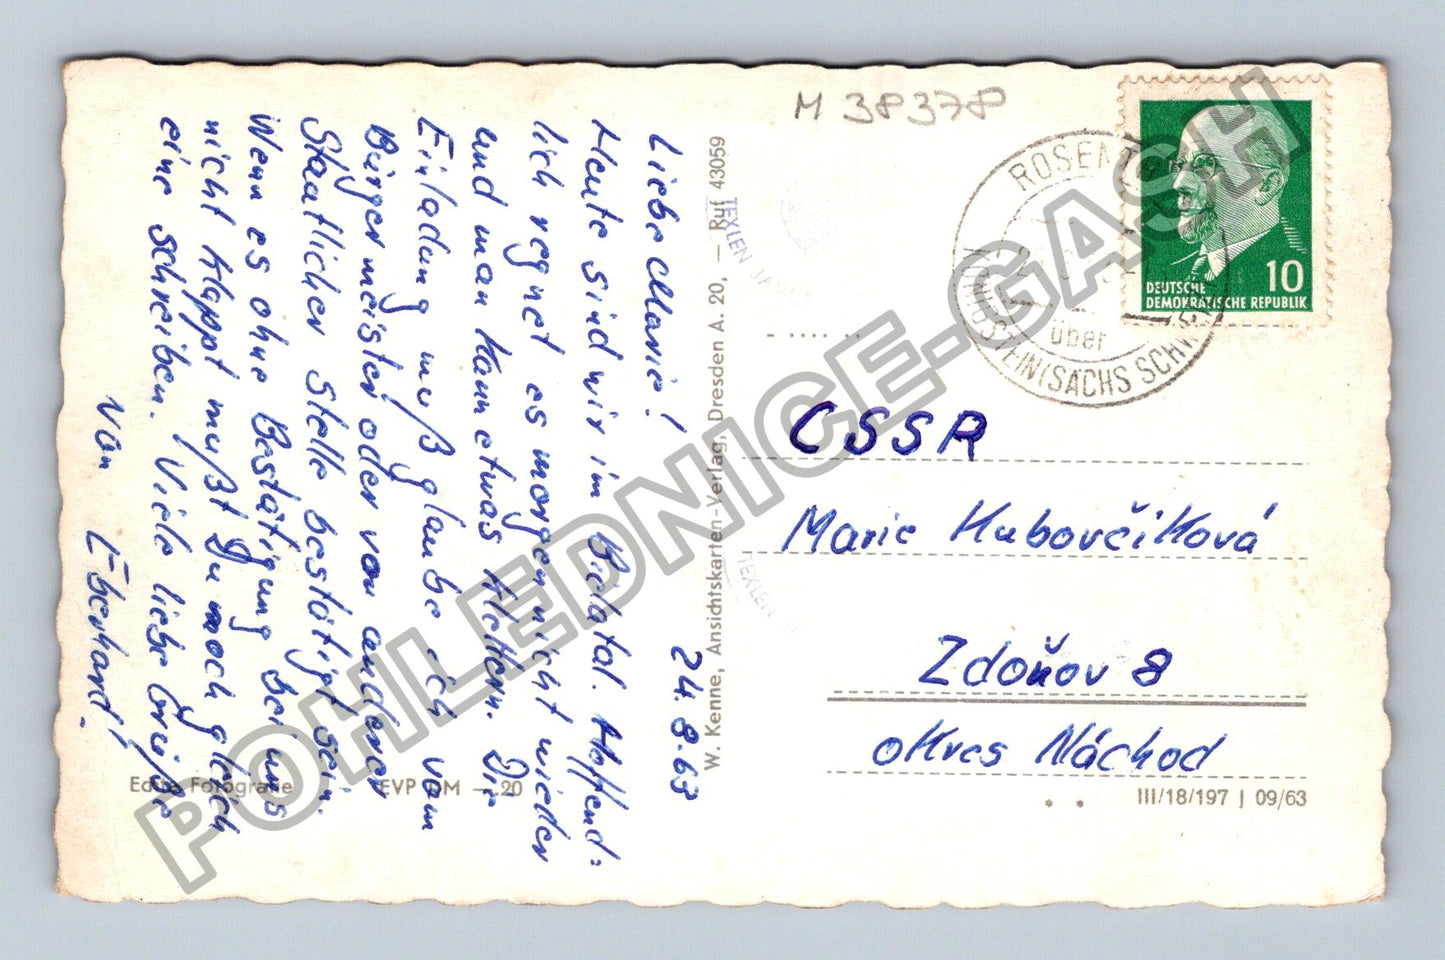 M 38378
ROSENT
über
KÖNIGSTEIN (SÄCHS SCHWEIZ)
10
DEUTSCHE
DEMOKRATISCHE REPUBLIK
24.8.63
Liebe Marie!
Heute sind wir im Bielatal. Hoffend-
lich regnet es morgen nicht wieder
und man kann etwas klettern. Die
Einladung muß glaube ich vom
Bürgermeister oder von anderer
Staatlicher Stelle bestätigt sein.
Wenn es ohne Bestätigung bei uns
nicht klappt mußt Du noch gleich
eine schreiben. Viele liebe Grüße
von Eberhard.
Echte Fotografie EVP DM -.20
W. Kenne, Ansichtskarten-Verlag, Dresden A. 20, — Ruf 43059
TEXLEN
TEXLEN
CSSR
Marie Kubovčiková
Zdoňov 8
okres Náchod
III/18/197 J 09/63
POHLEDNICE-GASH